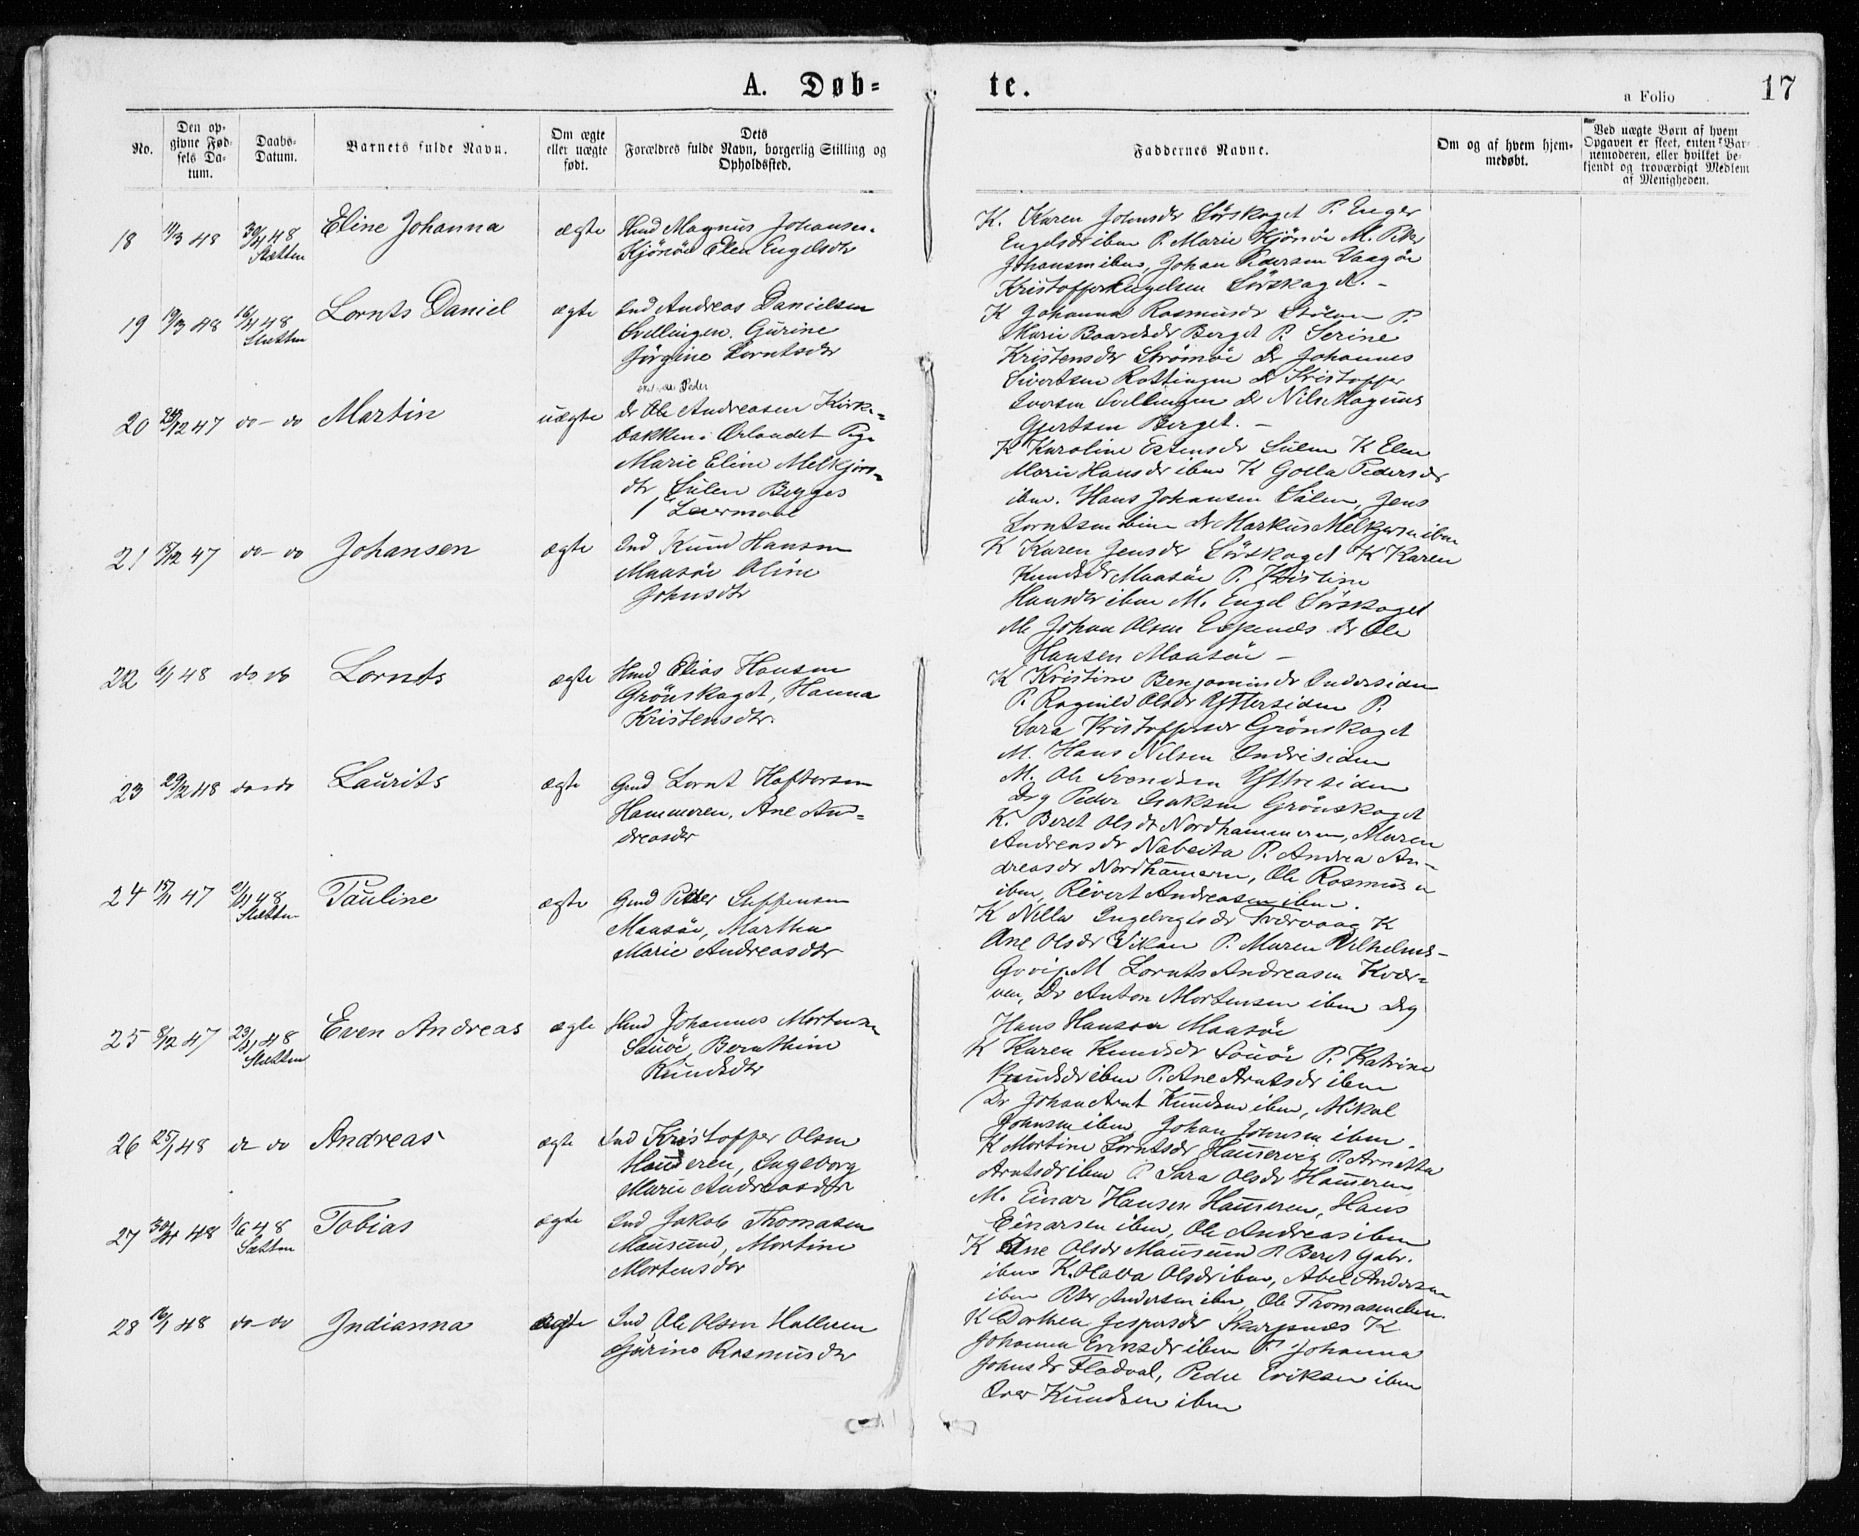 A. Døb-
te.
a Folio 17
No.
Den op-
givne Fød-
sels Da-
tum.
Daabs-
Datum.
Barnets fulde Navn.
Om ægte
eller uægte
født.
Dets
Forældres fulde Navn, borgerlig Stilling og
Opholdssted.
Faddernes Navne.
Om og af hvem hjem-
medøbt.
Ved uægte Børn af hvem
Opgaven er skeet, enten Bar-
nemoderen, eller hvilket be-
kjendt og troværdigt Medlem
af Menigheden.
18 11/3 48 30/4 48 Eline Johanna ægte Magnus Johansen
Slætten
Kjönöe Elen Engelsdtr
K. Karen Johnsdr Sörskaget P. Inger
Engelsdr ibm P. Marie Kjönöe M. Peder
Johansen ibm, Johan Pedersen Vaagöe
Kristoffer Engelsen Sörskaget. -
19 19/3 48 16/4 48 Lornts Daniel ægte Ind Andreas Danielsen
Slætten
Svellingen. Gurine
Jörgine Lorntsdtr
K Johanna Rasmusdr Stölan P.
Marie Baardsdr Berget P. Serine
Kristensdr Strömöe Dr Johannes
Sivertsen Rottingen Dr Kristoffer
Iversen Svellingen Dr Nils Magnus
Gjertsen Berget. -
Peder
20 47 do - do Martin uægte Dr Ole Andreasen Kirke-
bakken i Ørlandet Pige
Marie Eline Melkjörs-
dtr Sulen Begges
1 Leiermaal
K Karoline Estensdr Sulen K Elen
Marie Hansdr ibm K Golla Pedersdr
ibm. Hans Johansen Sulen, Jens
Lorntsen ibm Dr Markus Melkjörsen ibm
21 15/12 47 do - do Johansen ægte Ind Knud Hansen
Maasöe Oline
Johnsdtr
K Karen Jensdr Sörskaget K Karen
Knudsdr Maasöe P. Kristine
Hansdr ibm M. Engel Sörskaget
M. Johan Olsen Espenæs Dr Ole
Hansen Maasöe -
22 6/1 48 do do Lornts ægte Hmd Elias Hansen
Grönskaget, Hanna
Kristensdtr.
K Kristine Benjaminsdr Indersiden
P. Ragnild Olsdr Yttersiden P.
Sara Kristoffersdr Grönskaget
M. Hans Nilsen Indresiden
M. Ole Svendsen Yttresiden
Dg Peder Isaksen Grönskaget
23 29/2 48 do do Laurits ægte Gmd Lornt Haftorsen
Hammeren, Ane An-
dreasdtr
K. Beret Olsdr Nordhammeren, Maren
Andreasdr Nabeita P. Andrea An-
dreasdr Nordhameren, Ole Rasmusen
ibm, Revert Andreasen ibm.
24 15/11 47 2/4 48 Pauline ægte Gmd Peder Steffensen
Slætten
Maasöe, Martha
Marie Andreasdtr
K Nilla Ingelvegtsdr Tværvaag K
Ane Olsdr Vikan P. Maren Vilhelms-
M Lornts Andreasen Kvær-
ven, Dr Anton Mortensen ibm Dg
Hans Hanson Maasöe
25 8/12 47 23/4 48 Even Andreas ægte Hmd Johannes Mortensen
Slætten
Sauöe, Bernthine
Knudsdtr
K Karen Knudsdr Sauöe P. Katrine
Knudsdr ibm P. Ane Arntsdr ibm
Dr Johan Arnt Knudsen ibm, Mikal
Johnsen ibm, Johan Johnsen ibm.
26 25/1 48 do do Andreas ægte Ind Kristoffer Olsen
Hameren, Ingeborg
Marie Andreasdtr
K Mortine Lorntsdr Hamervig P. Arnetta
Arntsdr ibm P. Sara Olsdr Hameren
M. Einar Hansen Hameren, Hans
Einarsen ibm, Ole Andreas ibm
27 30/4 48 1/6 48 Tobias ægte Ind Jakob Thomasen
Slætten
Mausund, Mortine
Mortensdtr
K Ane Olsdr Mausund P. Beret Gabr.
ibm K. Olava Olsdr ibm, Abel Andersen
ibm Peter Andersen ibm, Ole Thomasen ibm
28 16/1 48 do - do Indianna ægte Ind Ole Olsen Halleren
Gurine Rasmusdtr
K Dorthea Jespersdr Skarpnæs K
Johanna Eriksdr ibm P. Johanna
Johnsdr Fladval, Peder Eriksen ibm
Iver Knudsen ibm